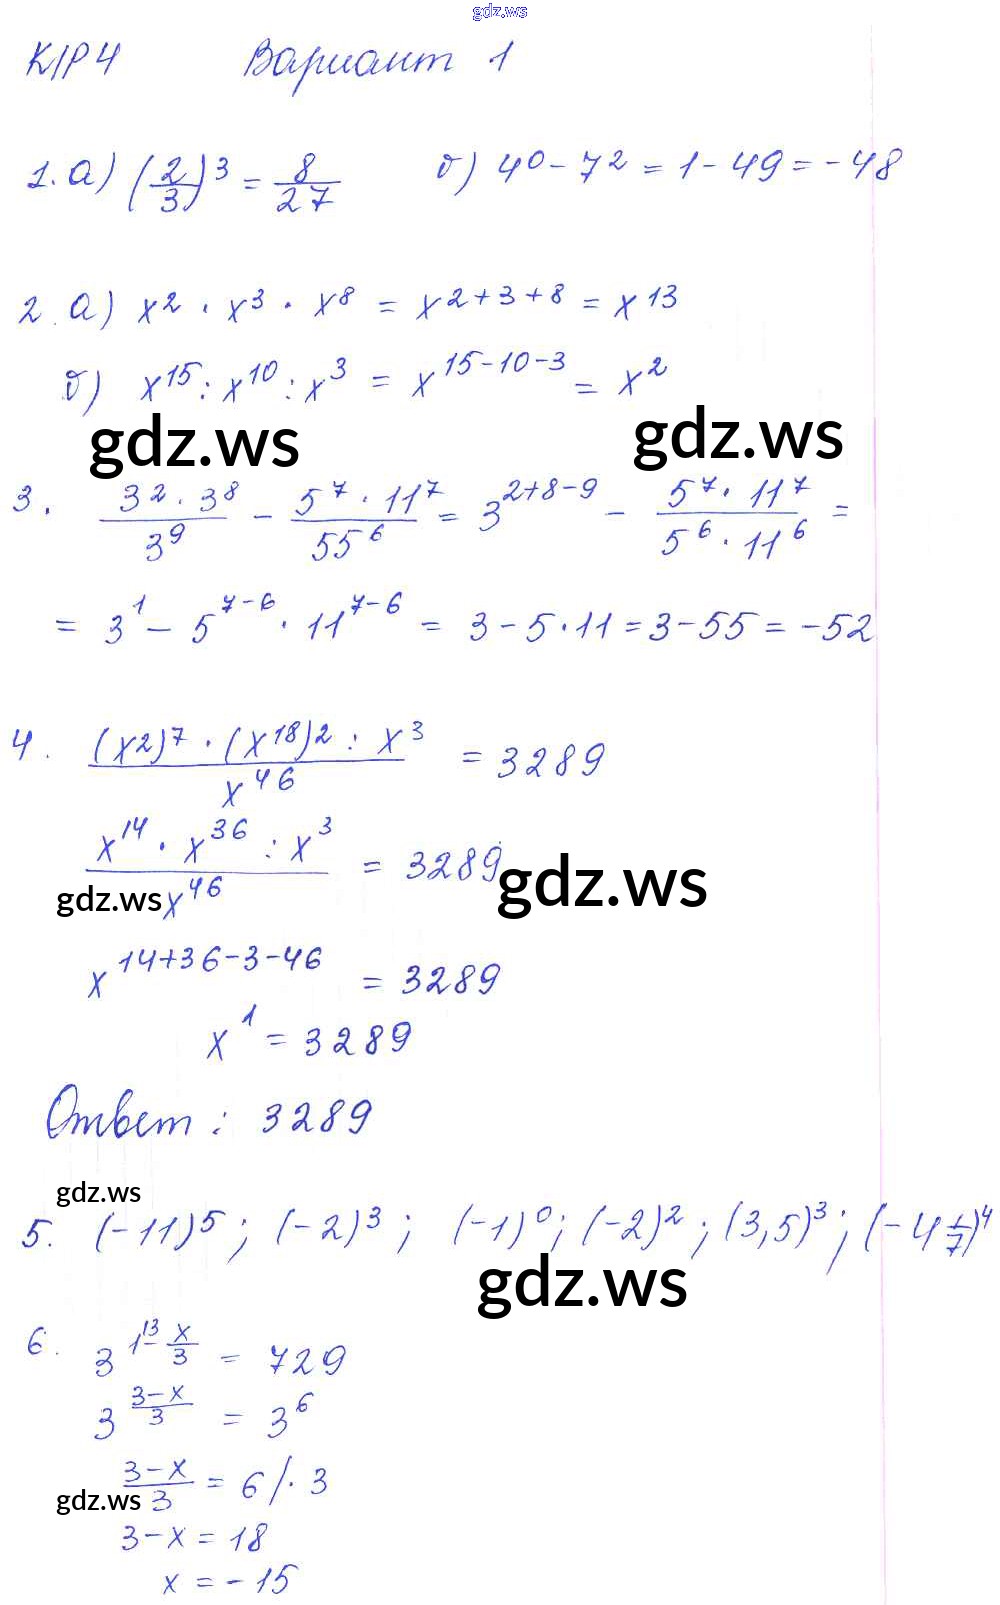 gdz.ws
К/Р 4 Вариант 1
1. а) (2/3)³ = 8/27 б) 4⁰ - 7² = 1 - 49 = -48
2. а) x² · x³ · x⁸ = x²⁺³⁺⁸ = x¹³
б) x¹⁵ : x¹⁰ : x³ = x¹⁵⁻¹⁰⁻³ = x²
gdz.ws gdz.ws
3. (3² · 3⁸)/3⁹ - (5⁷ · 11⁷)/55⁶ = 3²⁺⁸⁻⁹ - (5⁷ · 11⁷)/(5⁶ · 11⁶) =
= 3¹ - 5⁷⁻⁶ · 11⁷⁻⁶ = 3 - 5 · 11 = 3 - 55 = -52
4. ((x²)⁷ · (x¹⁸)² : x³)/x⁴⁶ = 3289
(x¹⁴ · x³⁶ : x³)/x⁴⁶ = 3289
gdz.ws gdz.ws
x¹⁴⁺³⁶⁻³⁻⁴⁶ = 3289
x¹ = 3289
Ответ: 3289
gdz.ws
5. (-11)⁵; (-2)³; (-1)⁰; (-2)²; (3,5)³; (-4 1/7)⁴
gdz.ws
6. 3^(1\3 - x/3) = 729
3^((3-x)/3) = 3⁶
(3-x)/3 = 6 /· 3
gdz.ws
3 - x = 18
x = -15